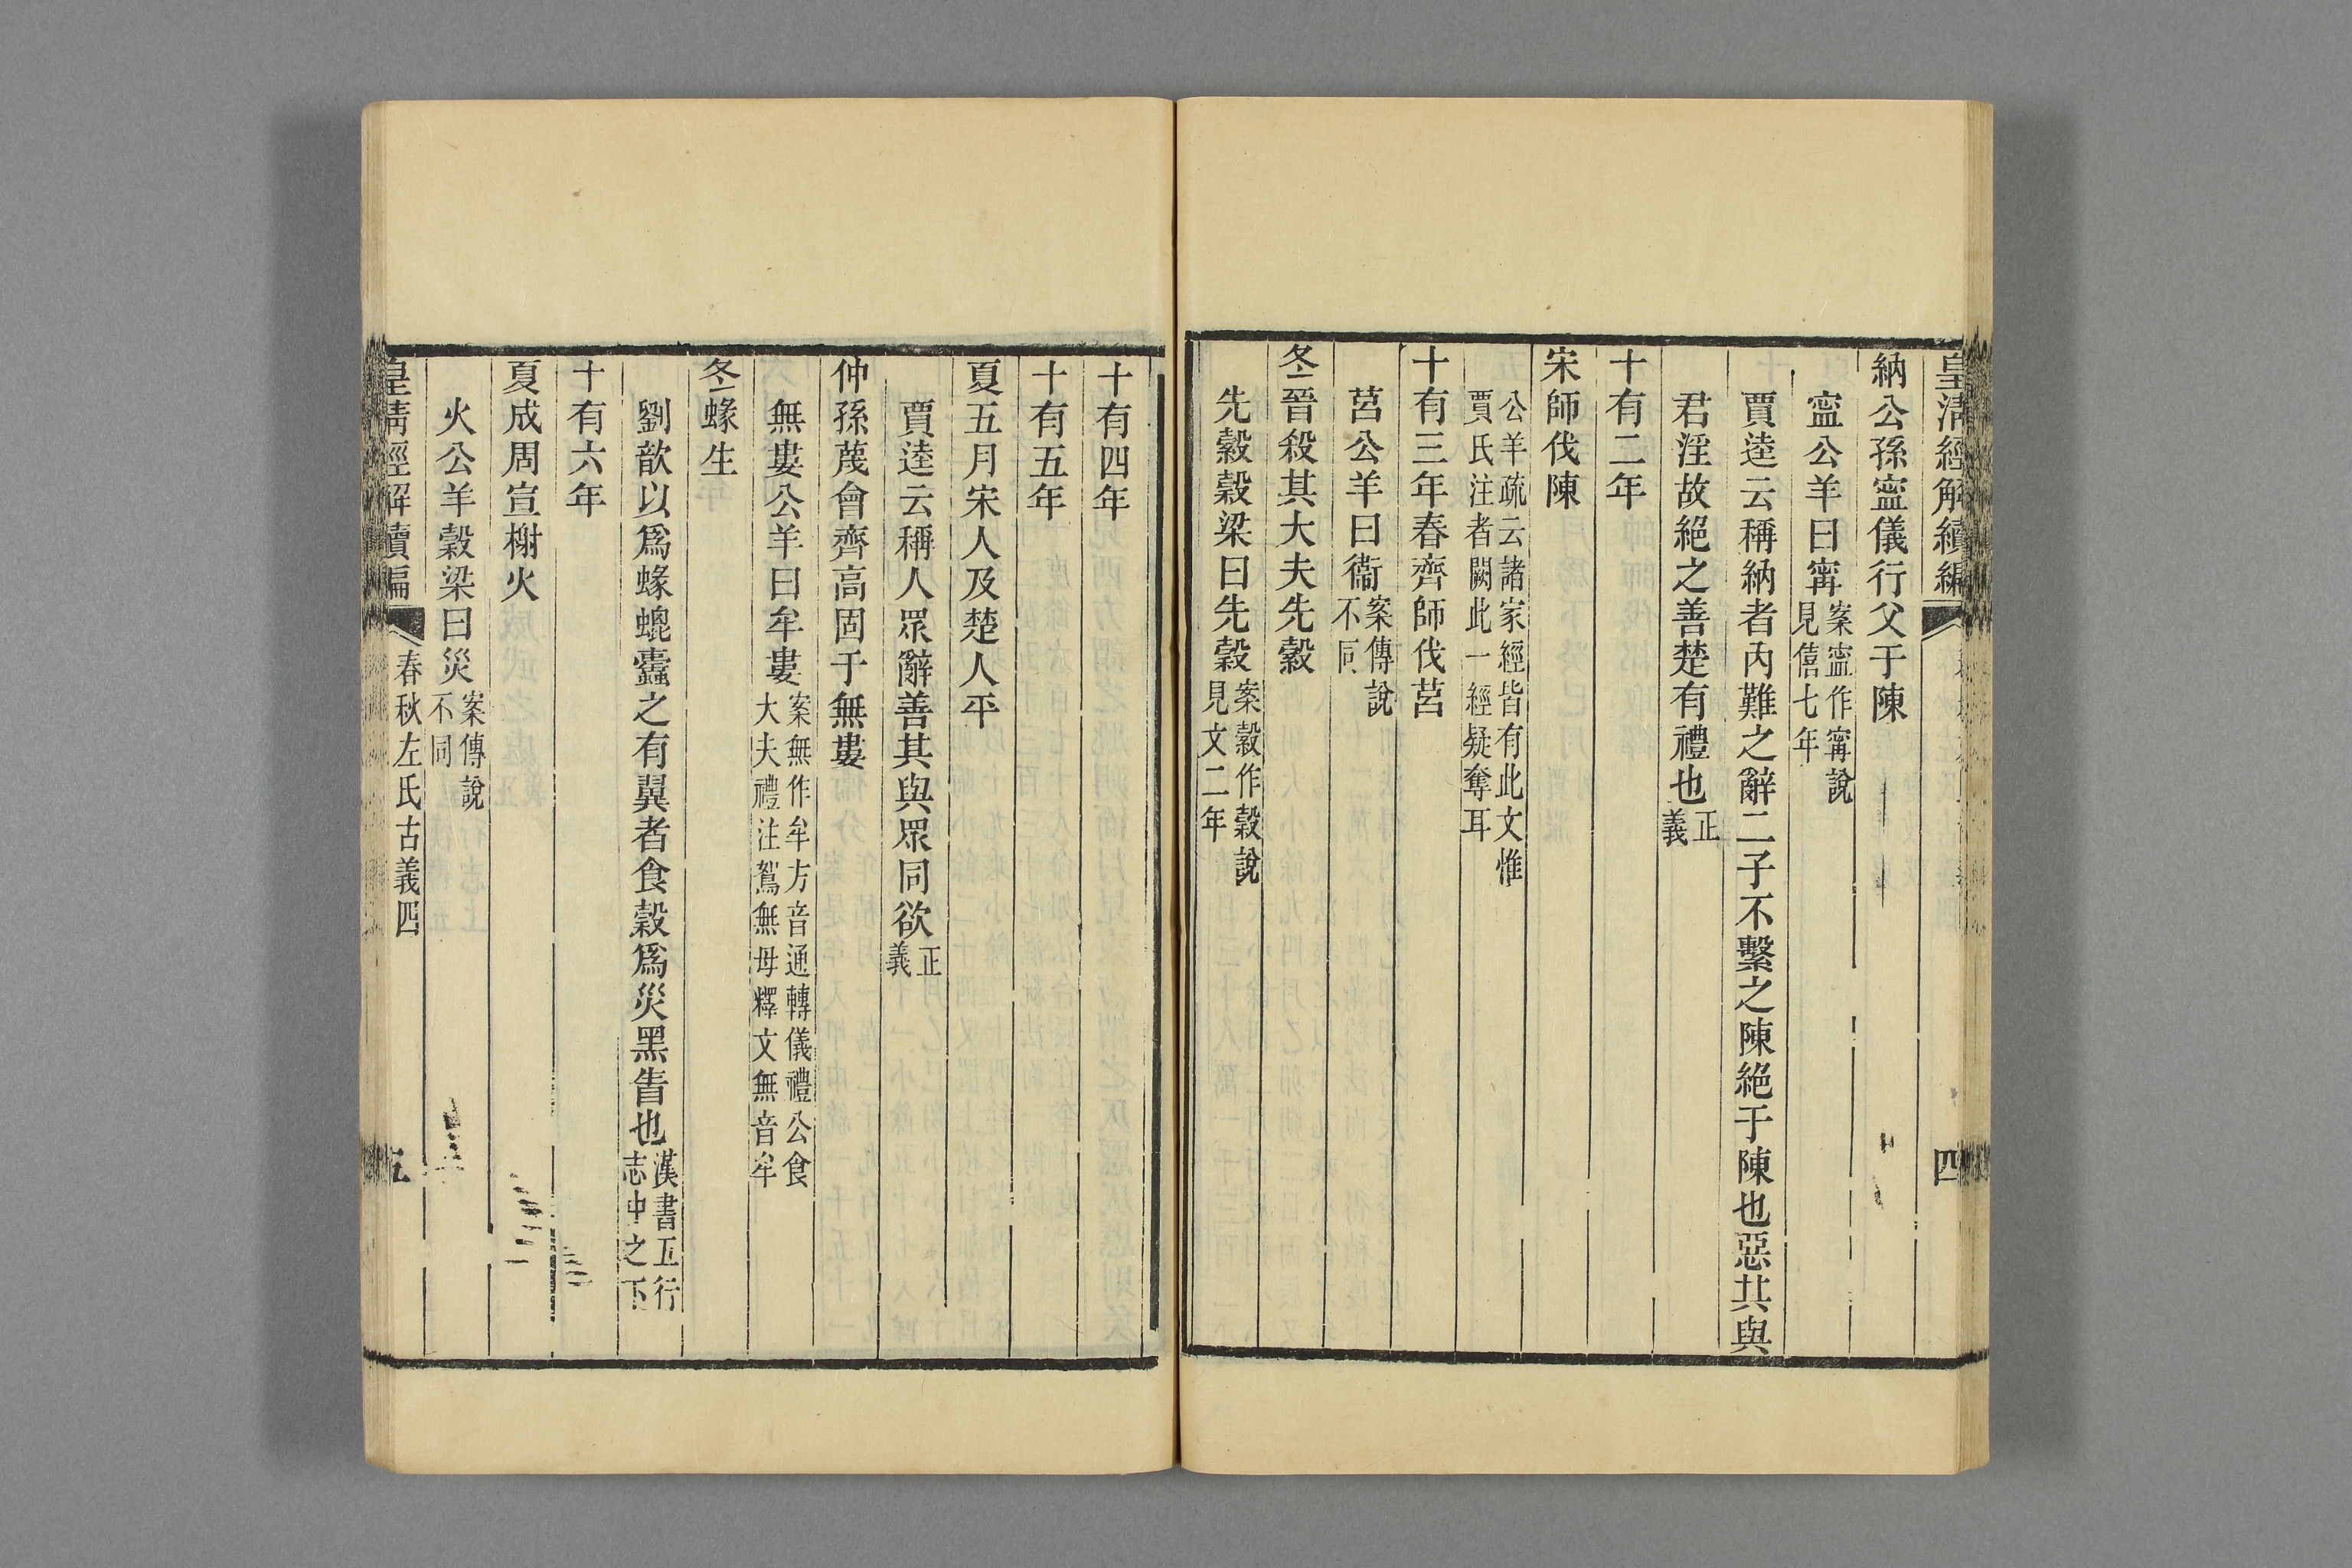 皇清經解續編
四
納公孫寍儀行父于陳
寍公羊曰甯案寍作甯說見僖七年
賈逵云稱納者內難之辭二子不繫之陳絕于陳也惡其與
君淫故絕之善楚有禮也正義
十有二年
宋師伐陳
公羊疏云諸家經皆有此文惟
賈氏注者闕此一經疑奪耳
十有三年春齊師伐莒
莒公羊曰衞案傳說不同
冬晉殺其大夫先縠
先縠穀梁曰先穀案縠作穀說見文二年
十有四年
十有五年
夏五月宋人及楚人平
賈逵云稱人眾辭善其與眾同欲正義
仲孫蔑會齊高固于無婁
無婁公羊曰牟婁案無作牟方音通轉儀禮公食大夫禮注鴽無母釋文無音牟
冬蝝生
劉歆以爲蝝螕蠹之有翼者食穀爲災黑眚也漢書五行志中之下
十有六年
夏成周宣榭火
火公羊穀梁曰災案傳說不同
皇清經解續編
春秋左氏古義四
五